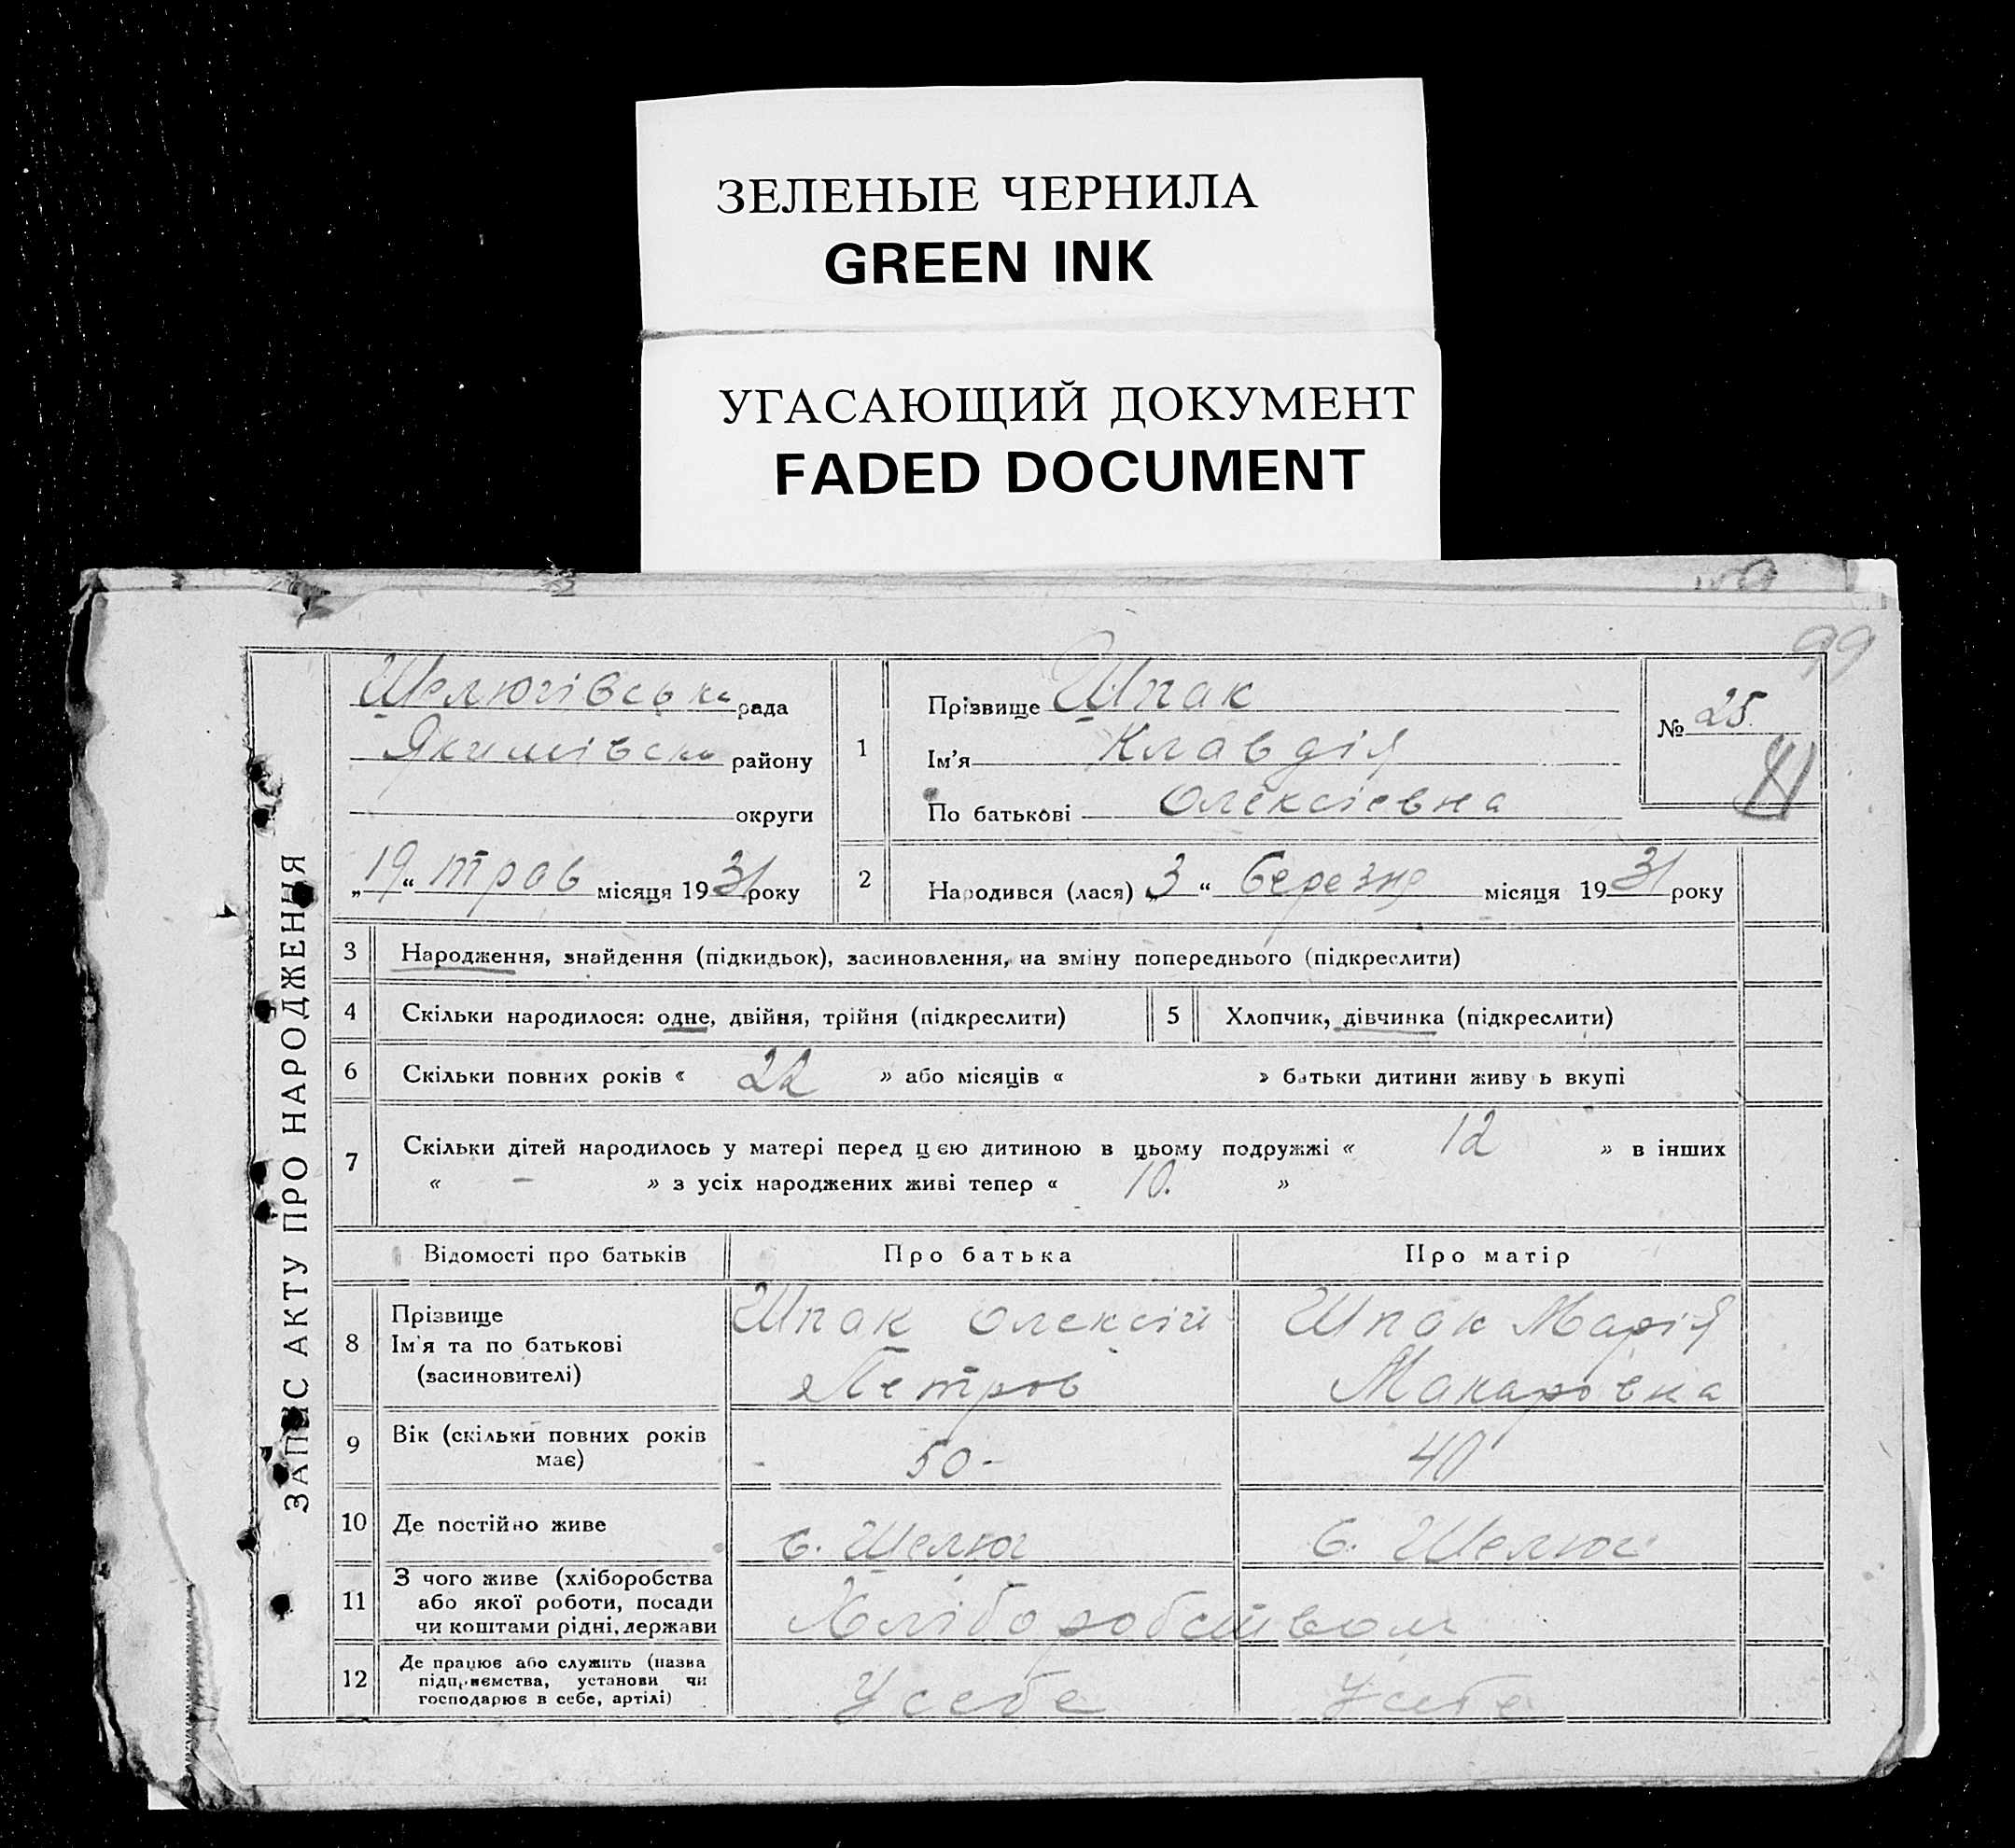 ЗЕЛЕНЫЕ ЧЕРНИЛА
GREEN INK
УГАСАЮЩИЙ ДОКУМЕНТ
FADED DOCUMENT
99
ЗАПИС АКТУ ПРО НАРОДЖЕННЯ
Шелюгівська рада
Якимівсько району
округи
„19“ трав місяця 1931 року
1 Прізвище Шпак
Ім’я Клавдія
По батькові Олексіевна
№ 25
2 Народився (лася) „3“ березня місяця 1931 року
3 Народження, знайдення (підкидьок), засиновлення, на зміну попереднього (підкреслити)
4 Скільки народилося: одне, двійня, трійня (підкреслити) 5 Хлопчик, дівчинка (підкреслити)
6 Скільки повних років « 22 » або місяців « » батьки дитини живу ь вкупі
7 Скільки дітей народилось у матері перед цєю дитиною в цьому подружжі « 12 » в інших
« – » з усіх народжених живі тепер « 10. »
Відомості про батьків Про батька Про матір
8 Прізвище Шпак Олексій Шпак Марія
Ім’я та по батькові
(засиновителі) Петров Макаровна
9 Вік (скільки повних років
має) 50 - 40
10 Де постійно живе с. Шелюг с. Шелюг
11 З чого живе (хліборобства
або якої роботи, посади
чи коштами рідні, держави Хліборобством
12 Де працює або служить (назва
підприємства, установи чи
господарює в себе, артілі) У себе У себе